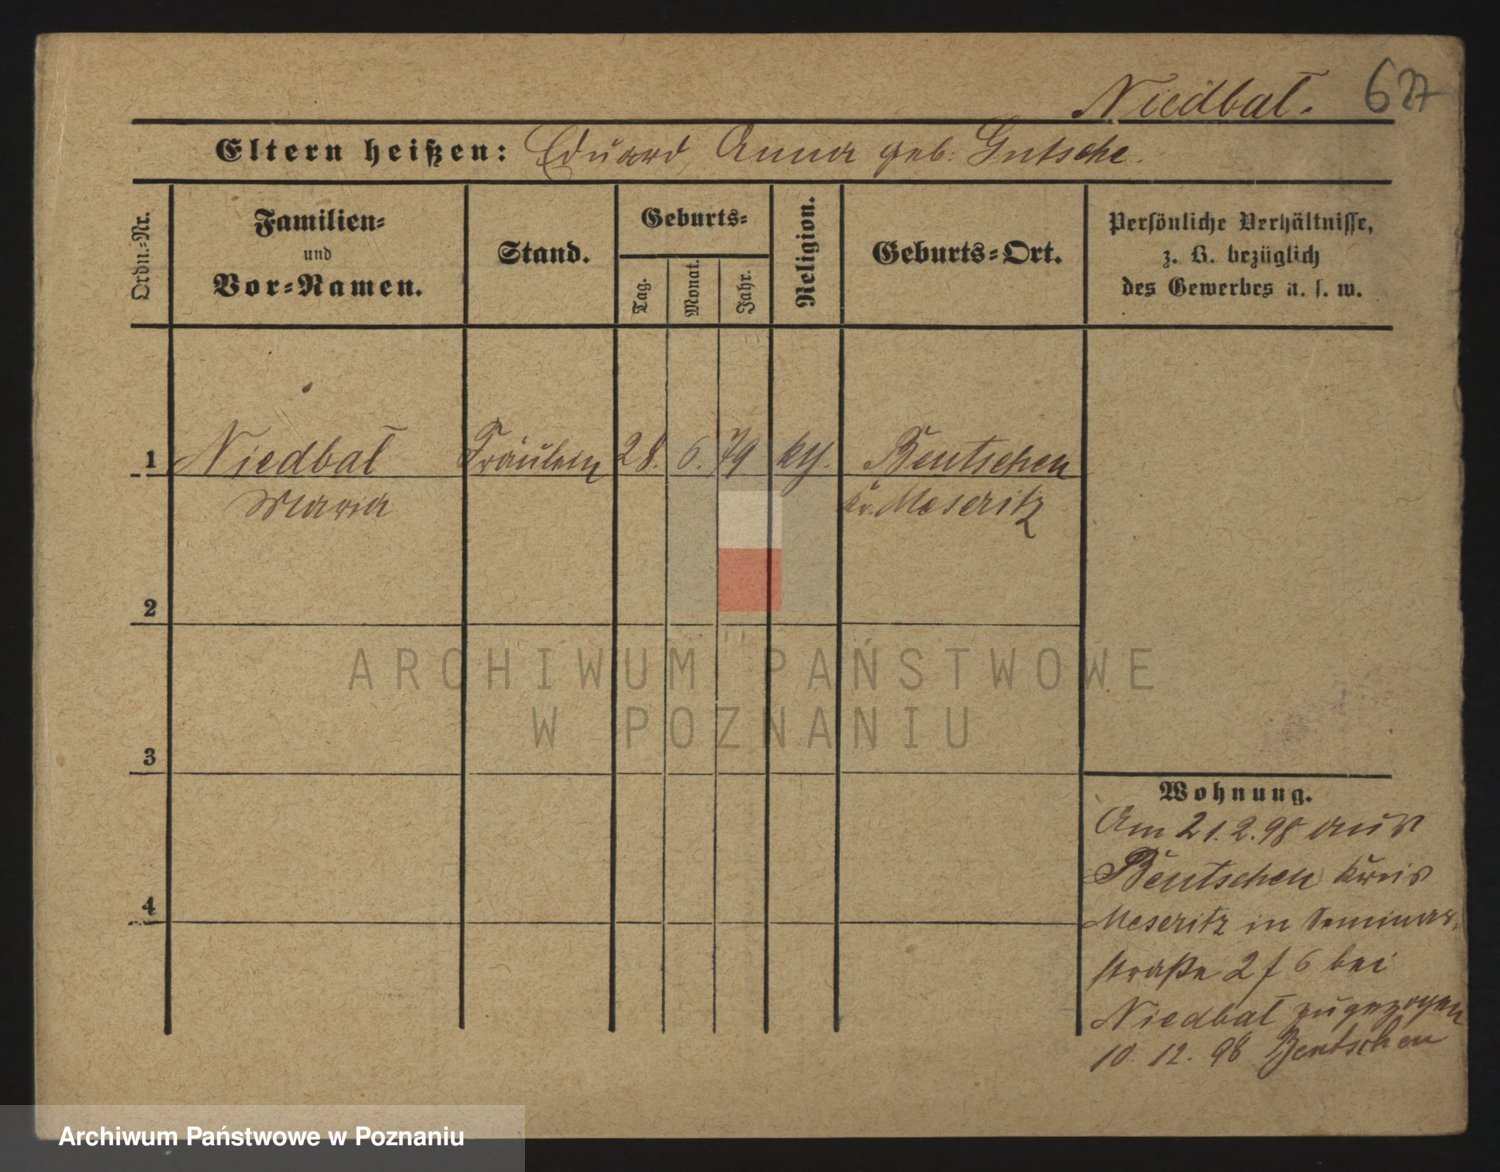 Niedbał. 627
Eltern heißen: Eduard, Anna geb. Gutsche.
Ordn.-Nr.
Familien-
und
Vor-Namen.
Stand.
Geburts-
Tag.
Monat.
Jahr.
Religion.
Geburts-Ort.
Persönliche Verhältnisse,
z. B. bezüglich
des Gewerbes u. s. w.
1 Niedbał Fräulein 28. 6. 79 kth. Bentschen
Maria Kr. Meseritz
2
3
4
Wohnung.
Am 21.2.98 aus
Bentschen Kreis
Meseritz in Seminar-
straße 2 f 6 bei
Niedbał zugezogen
10. 12. 98 Bentschen
ARCHIWUM PAŃSTWOWE
W POZNANIU
Archiwum Państwowe w Poznaniu